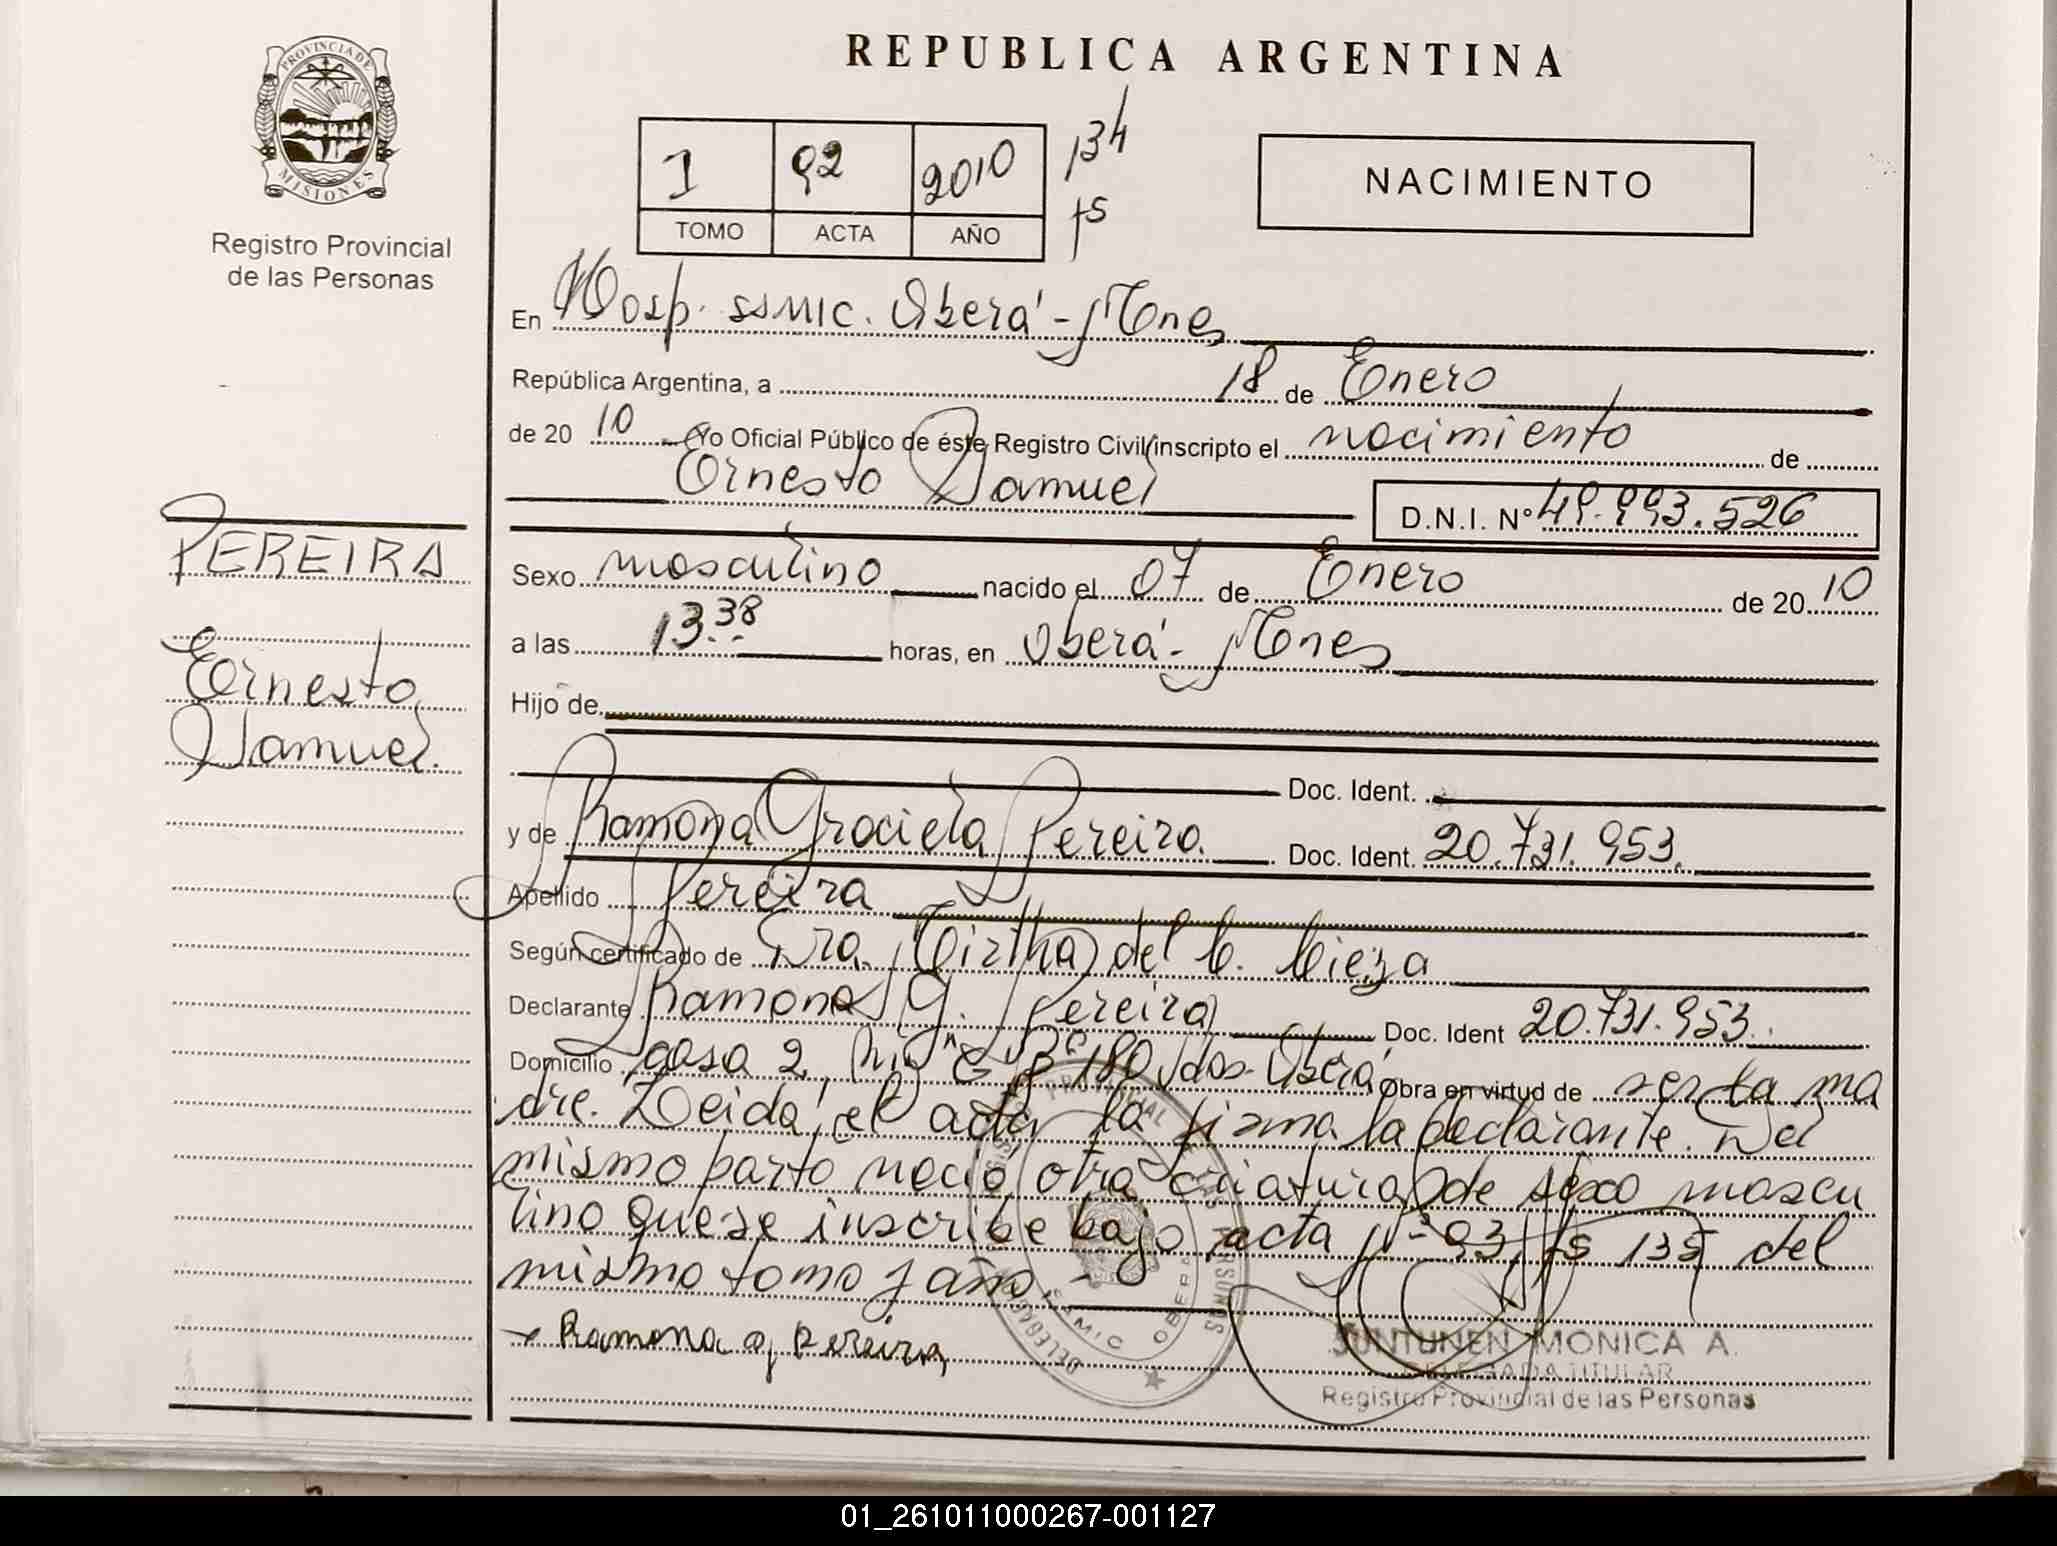 REPUBLICA ARGENTINA
PROVINCIA DE
MISIONES
Registro Provincial
de las Personas
I 92 2010 134
TOMO ACTA AÑO fs
NACIMIENTO
En Hosp. SAMIC. Oberá - Mnes
República Argentina, a 18 de Enero
de 20 10 Yo Oficial Público de éste Registro Civil inscripto el nacimiento de
Ernesto Samuel D.N.I. Nº 49.993.526
PEREIRA
Ernesto
Samuel.
Sexo masculino nacido el 07 de Enero de 20 10
a las 13.38 horas, en Oberá - Mnes
Hijo de
Doc. Ident.
y de Ramona Graciela Pereira. Doc. Ident. 20.731.953.
Apellido Pereira
Según certificado de Dra. Mirtha del C. Cieza
Declarante Ramona G. Pereira Doc. Ident 20.731.953.
Domicilio casa 2, Bº 180 Oberá Obra en virtud de ser la ma
dre. Leida el acta la firma la declarante. Del
mismo parto nació otra criatura de sexo mascu
lino que se inscribe bajo acta Nº 93, fs 135 del
mismo tomo y año. -
Ramona g Pereira
PROVINCIAL DE LAS PERSONAS
SAMIC OBERA
SUNTUNEN MONICA A.
DELEGADA TITULAR
Registro Provincial de las Personas
01_261011000267-001127